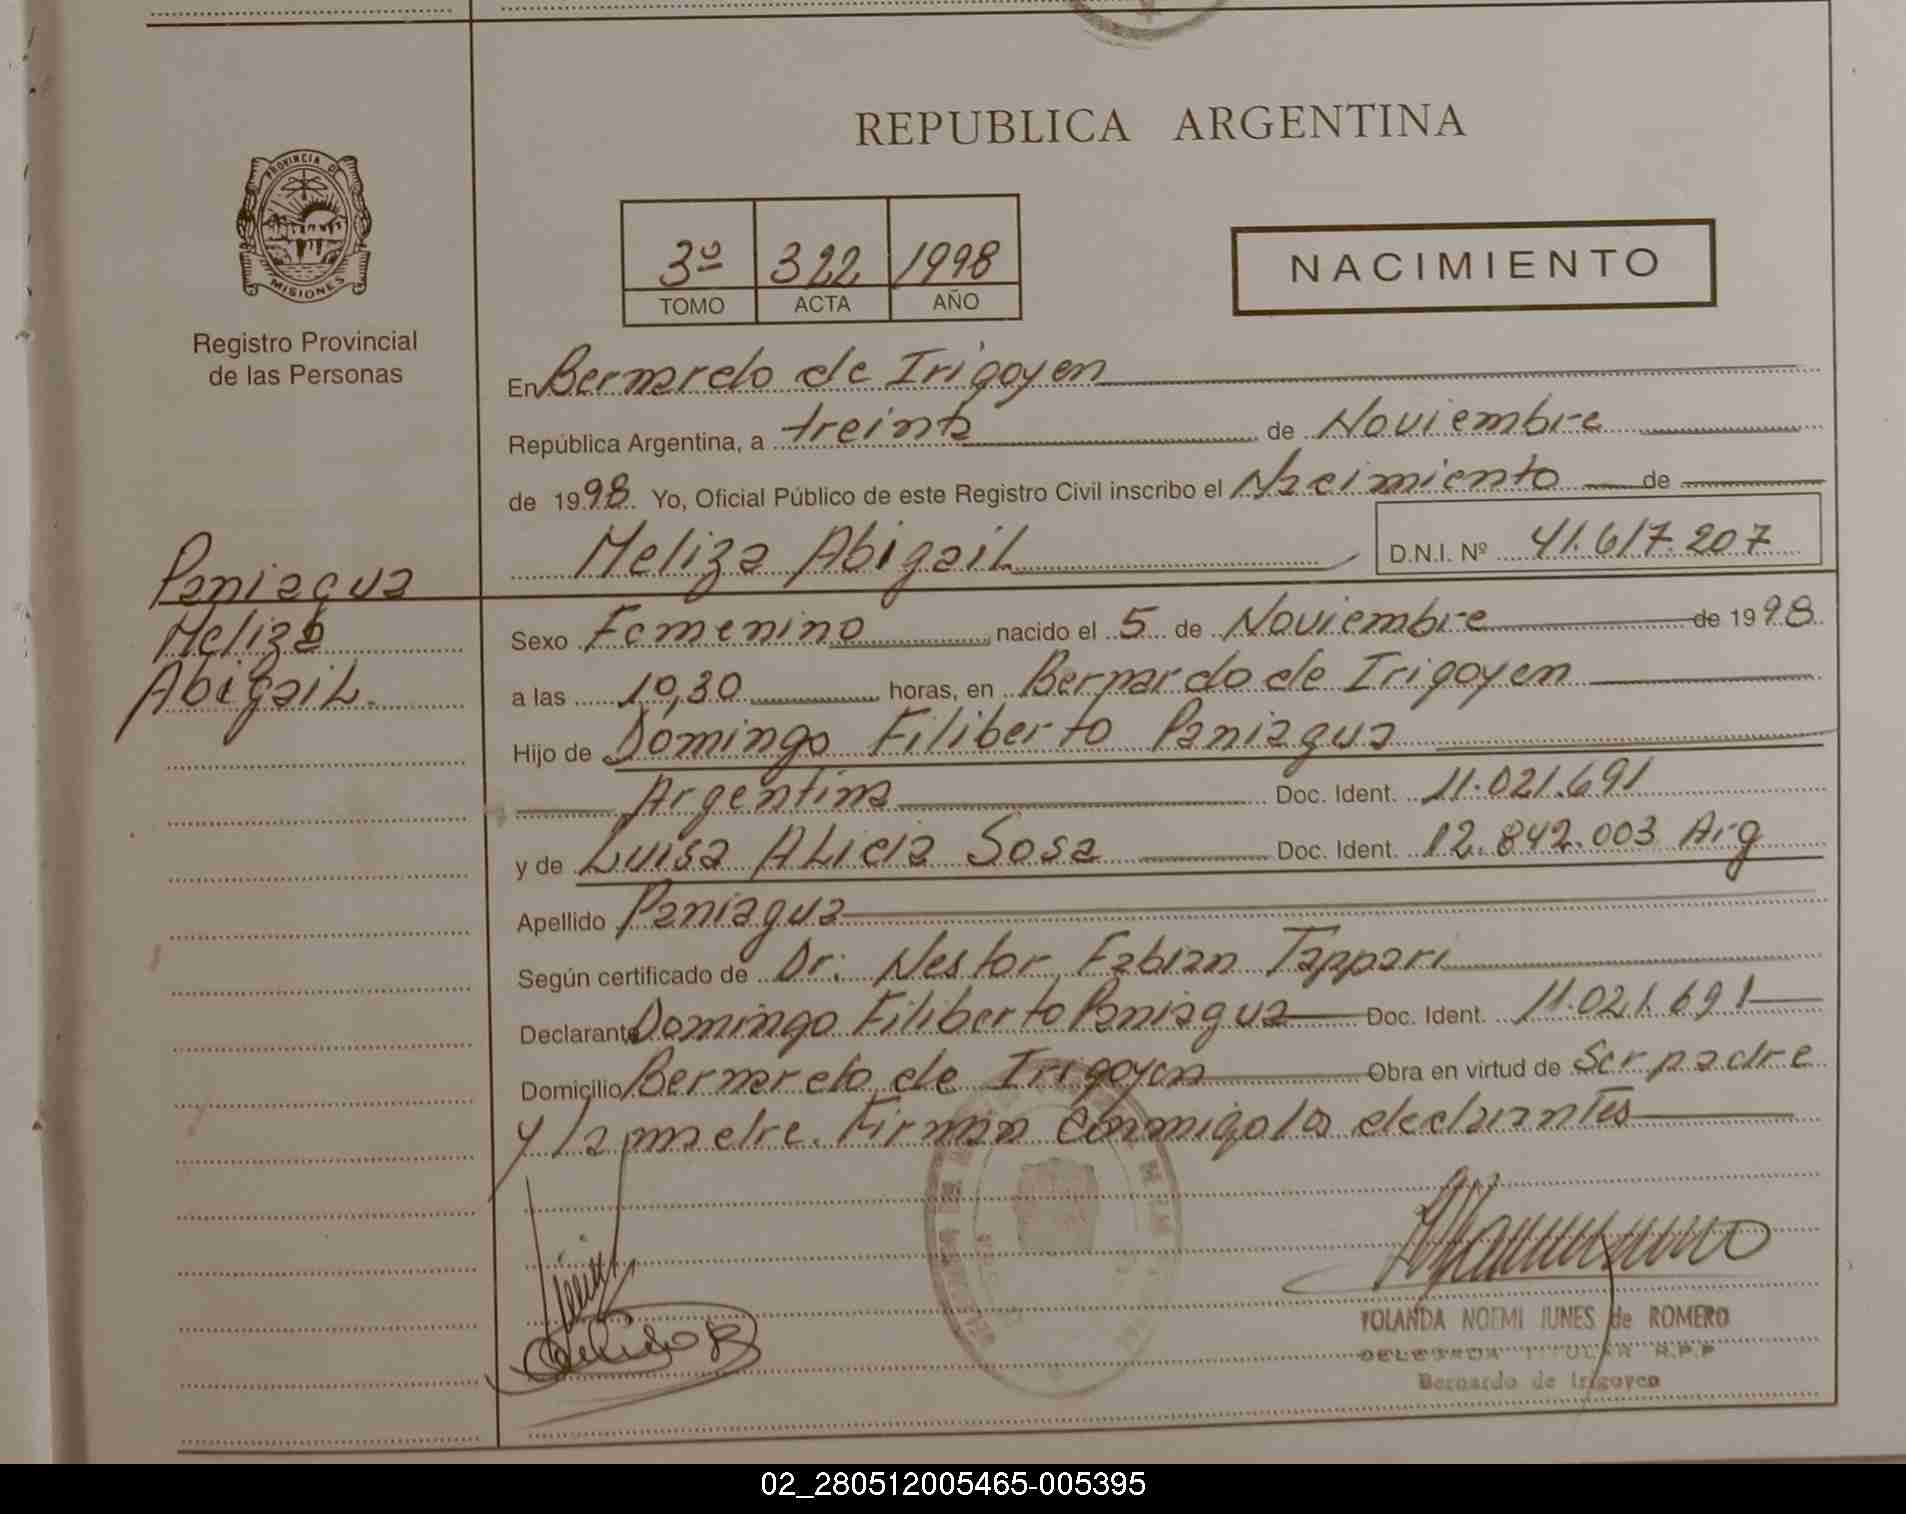 REPUBLICA ARGENTINA
PROVINCIA DE
MISIONES
Registro Provincial
de las Personas
3º 322 1998
TOMO ACTA AÑO
NACIMIENTO
En Bernardo de Irigoyen
República Argentina, a treinta de Noviembre
de 1998. Yo, Oficial Público de este Registro Civil inscribo el Nacimiento de
Meliza Abigail D.N.I. Nº 41.617.207
Paniagua
Meliza
Abigail.
Sexo Femenino nacido el 5 de Noviembre de 1998
a las 10,30 horas, en Bernardo de Irigoyen
Hijo de Domingo Filiberto Paniagua
Argentina Doc. Ident. 11.021.691
y de Luisa Alicia Sosa Doc. Ident. 12.842.003 Arg
Apellido Paniagua
Según certificado de Dr: Nestor Fabian Tappari
Declarante Domingo Filiberto Paniagua Doc. Ident. 11.021.691
Domicilio Bernardo de Irigoyen Obra en virtud de Ser padre
y la madre. Firman conmigo los declarantes
YOLANDA NOEMI JUNES de ROMERO
DELEGADA TITULAR R.P.P
Bernardo de Irigoyen
02_280512005465-005395